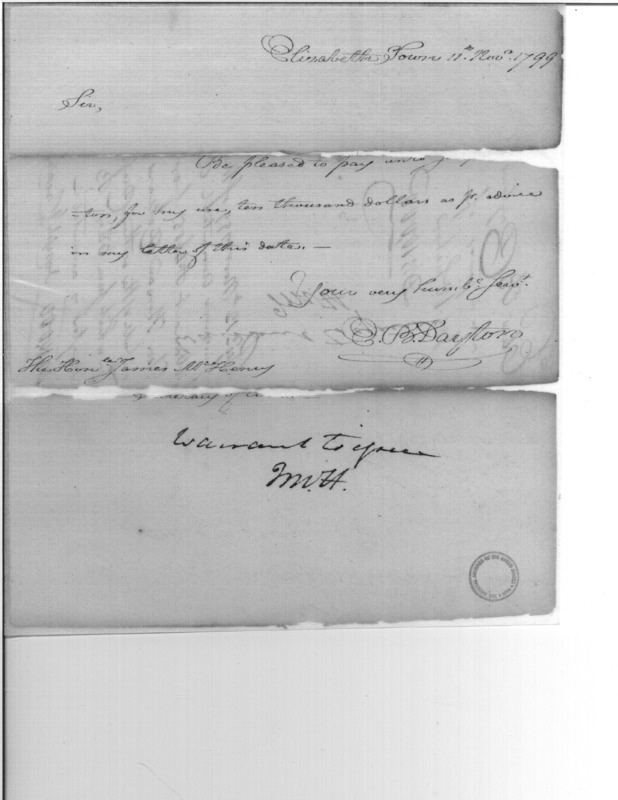 Elizabeth Town 11th Novr. 1799
Sir,
Be pleased to pay unto
-ton, for my use, ten thousand dollars as pr. advice
in my letter of this date. —
Your very humble. Servt.
E. B. Dayton
The Honble James McHenry
Secretary of
Warrant to issue
J McH.